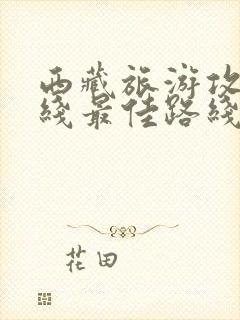 西藏旅游攻
线最佳路线
花田